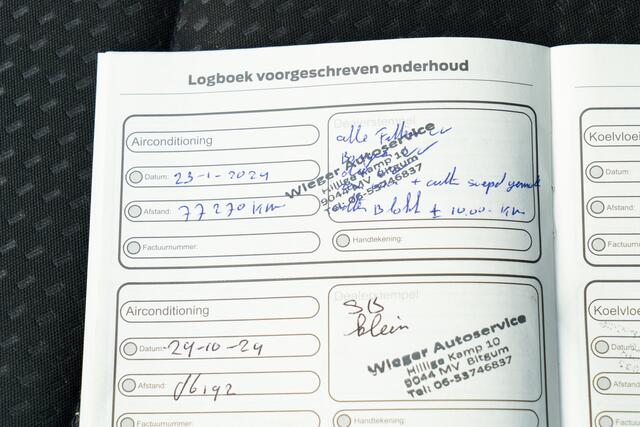 Logboek voorgeschreven onderhoud
Airconditioning
Datum: 23-1-2024
Afstand: 77270 KM
Factuurnummer:
Dealerstempel
alle
Wieger Autoservice
Hillige Kamp 10
9044 MV Bitgum
Tel: 06-53746837
Handtekening:
Airconditioning
Datum: 29-10-24
Afstand:
Factuurnummer:
Dealerstempel
SB
klein
Wieger Autoservice
Hillige Kamp 10
9044 MV Bitgum
Tel: 06-53746837
Handtekening:
Koelvloei
Datum:
Afstand:
Factuurnum
Koelvloe
Datum
Afstand:
Factuurnu